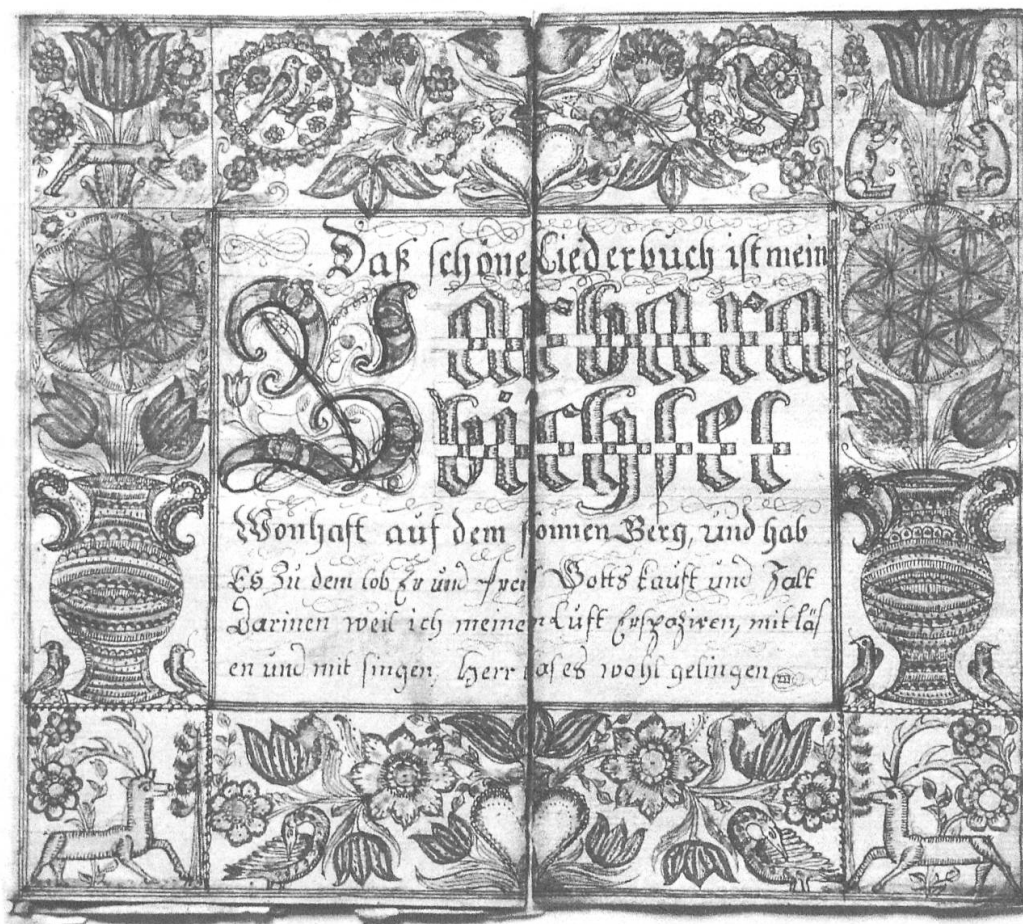 Daß schöne Liederbuch ist mein
Barbara
bichsel
Wonhaft auf dem sonnen Berg, und hab
Es Zu dem lob Er und Preiß Gotts kauft und Zalt
Darinen weil ich meinen Lust Erspaziren, mit läs
en und mit singen, Herr las es wohl gelingen